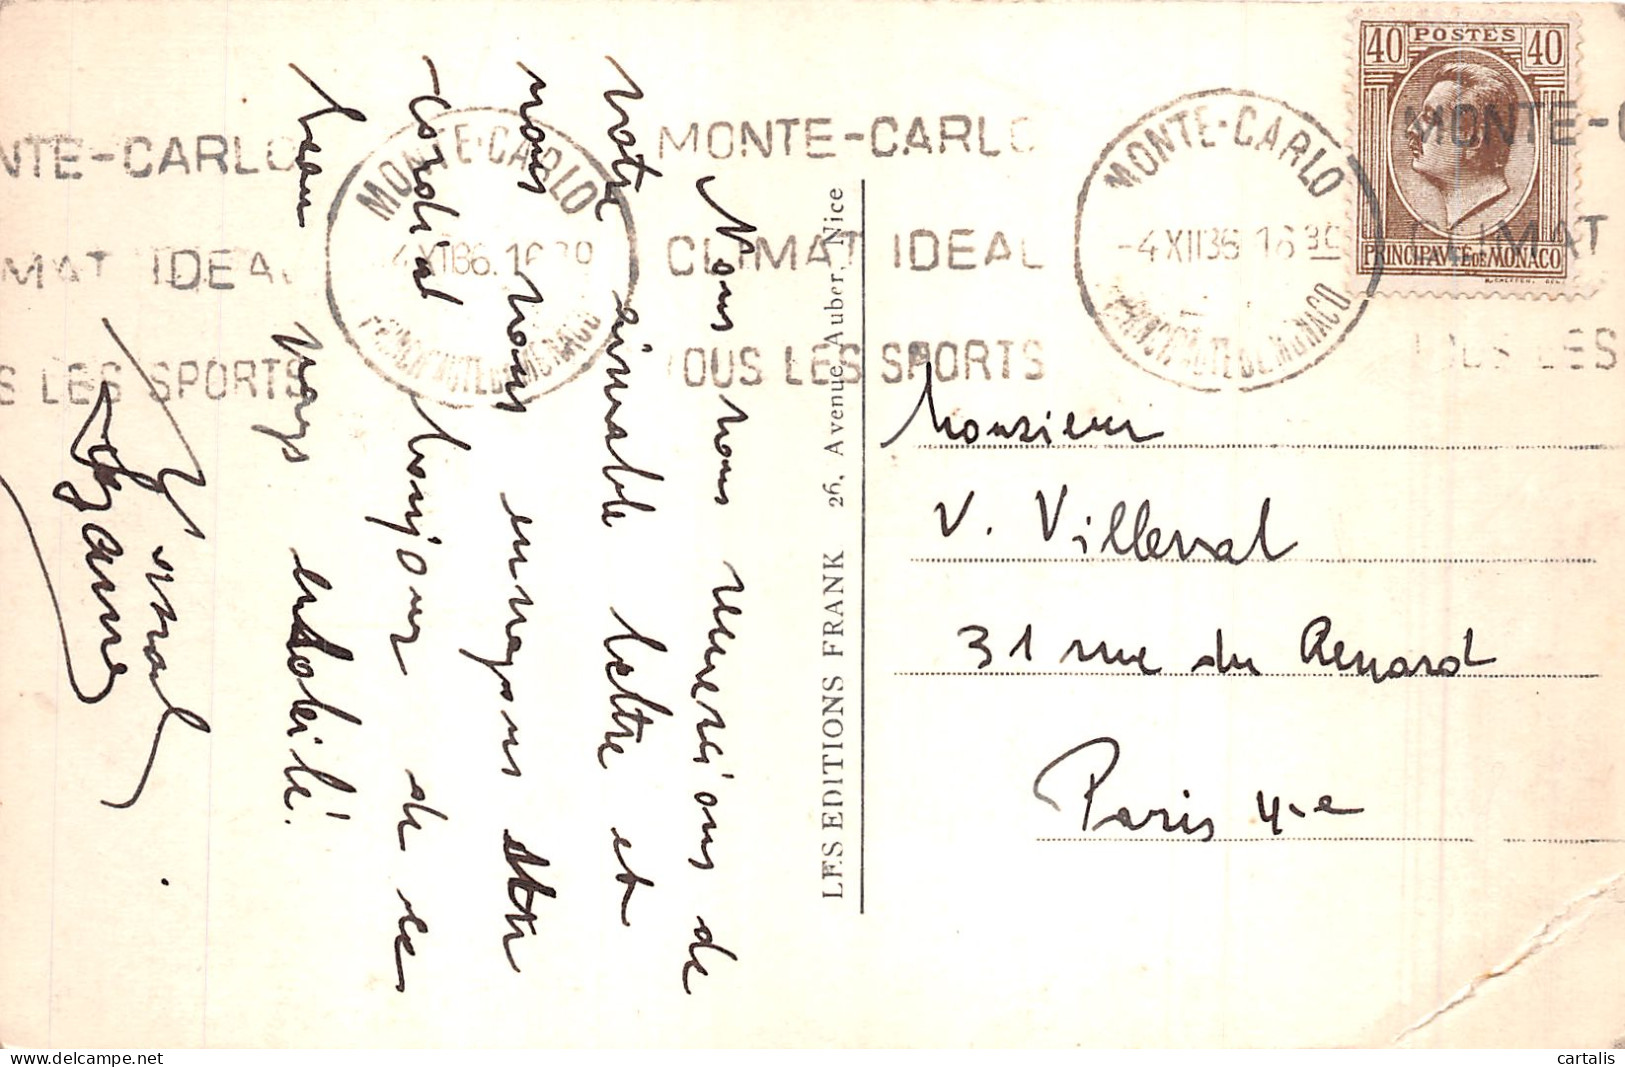 Nous nous remercions de
votre aimable lettre et
nous nous envoyons
cordial bonjour de ces
beau pays ensoleillé.
LES EDITIONS FRANK 26, Avenue Auber, Nice
NTE-CARLO
MAT IDEAL
S LES SPORTS
MONTE-CARLO
4 XII 36 16 30
PRINCIPAUTE DE MONACO
MONTE-CARLO
CLIMAT IDEAL
TOUS LES SPORTS
MONTE-CARLO
-4 XII 36 16 30
PRINCIPAUTE DE MONACO
MONTE-C
CLIMAT
TOUS LES
40 POSTES 40
PRINCIPAUTÉ DE MONACO
Monsieur
V. Villerval
31 rue du Renard
Paris 4-e
cartalis